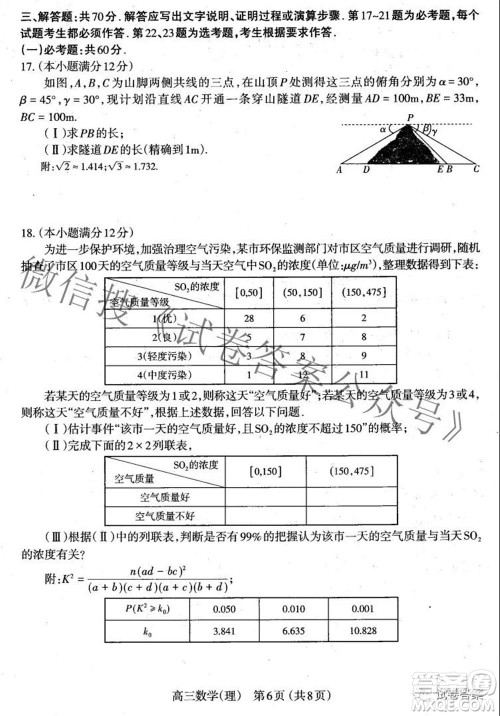 三、解答题:共70分.解答应写出文字说明、证明过程或演算步骤.第17~21题为必考题,每个
试题考生都必须作答.第22、23题为选考题,考生根据要求作答.
(一)必考题:共60分.
17.(本小题满分12分)
如图,A,B,C为山脚两侧共线的三点,在山顶P处测得这三点的俯角分别为α=30°,
β=45°,γ=30°,现计划沿直线AC开通一条穿山隧道DE,经测量AD=100m,BE=33m,
BC=100m.
(Ⅰ)求PB的长;
(Ⅱ)求隧道DE的长(精确到1m).
附:√2≈1.414;√3≈1.732.
P
α β γ
A D E B C
18.(本小题满分12分)
为进一步保护环境,加强治理空气污染,某市环保监测部门对市区空气质量进行调研,随机
抽查了市区100天的空气质量等级与当天空气中SO₂的浓度(单位:μg/m³),整理数据得到下表:
SO₂的浓度
空气质量等级 [0,50] (50,150] (150,475]
1(优) 28 6 2
2(良) 5 7 8
3(轻度污染) 3 8 9
4(中度污染) 1 12 11
若某天的空气质量等级为1或2,则称这天“空气质量好”;若某天的空气质量等级为3或4,
则称这天“空气质量不好”.根据上述数据,回答以下问题.
(Ⅰ)估计事件“该市一天的空气质量好,且SO₂的浓度不超过150”的概率;
(Ⅱ)完成下面的2×2列联表,
SO₂的浓度
空气质量 [0,150] (150,475]
空气质量好
空气质量不好
(Ⅲ)根据(Ⅱ)中的列联表,判断是否有99%的把握认为该市一天的空气质量与当天SO₂
的浓度有关?
附:K²=n(ad-bc)²/(a+b)(c+d)(a+c)(b+d);
P(K²≥k₀) 0.050 0.010 0.001
k₀ 3.841 6.635 10.828
高三数学(理) 第6页(共8页)
微信搜《试卷答案公众号》
试卷答案